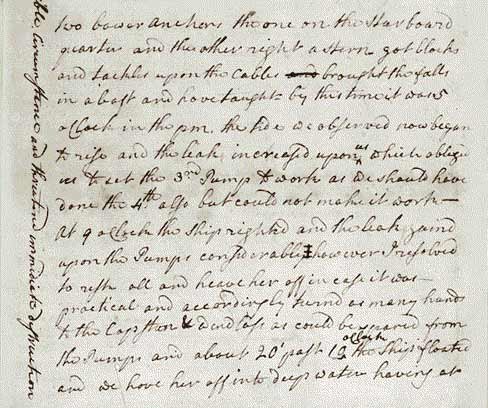 two bower anchors the one on the Starboard
quarter and the other right a stern got blocks
and tackles upon the Cables and brought the falls
in abaft and hove taught by this time it was 5
oClock in the pm. the tide we observed now began
to rise and the leak increased upon us which oblige'd
us to set the 3rd Pump to work as we should have
done the 4th also but could not make it work—
At 9 oClock the Ship righted and the leak gaind
upon the Pumps considerably however I resolved
to resk all and heave her off in case it was
practical and accordingly turnd as many hands
to the Capstan & Windlass as could be spared from
the Pumps and about 20' past 10 oClock the Ship floated
and we hove her off into deep water having at
ble, Circumstence and threatend immidiate destruction